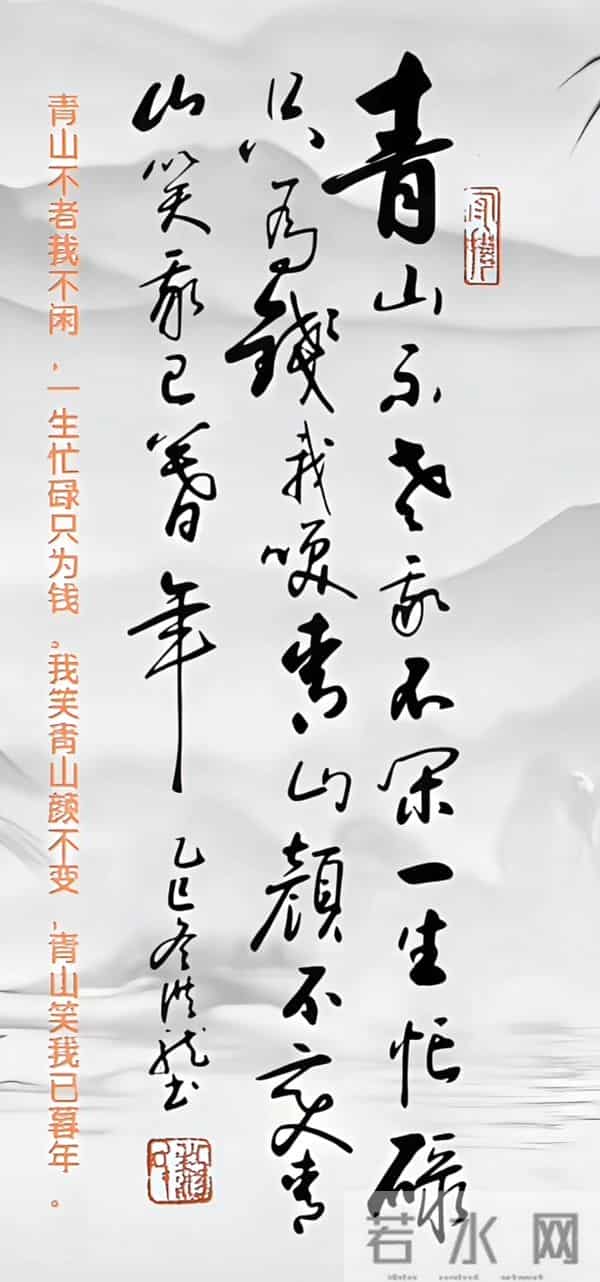 青山不老我不閑一生忙碌
只為錢我咲青山顏不變青
山笑我已暮年
乙巳冬洪龍書
青山不者我不闲，一生忙碌只为钱。我笑青山颜不变，青山笑我已暮年。
若水网